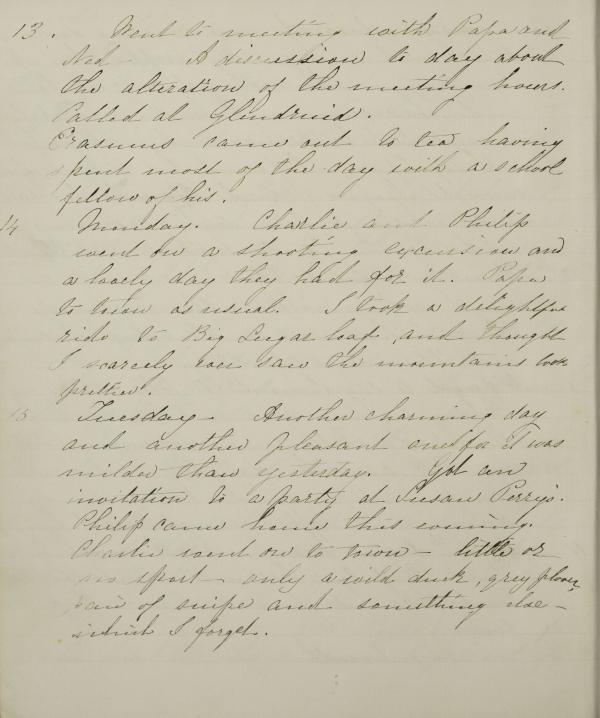 13. Went to meeting with Papa and
Ned – A discussion to day about
the alteration of the meeting hours.
Called at Glendruid.
Erasmus came out to tea having
spent most of the day with a school
fellow of his.
14 Monday. Charlie and Philip
went on a shooting excursion and
a lovely day they had for it. Papa
to town as usual. I took a delightful
ride to Big Sugar loaf and thought
I scarcely ever saw the mountains look
prettier.
15 Tuesday – Another charming day
and another pleasant one for it was
milder than yesterday. Got an
invitation to a party at Susan Perry's.
Philip came home this evening.
Charlie went on to town – little or
no sport – only a wild duck, grey plover,
pair of snipe and something else –
which I forget.